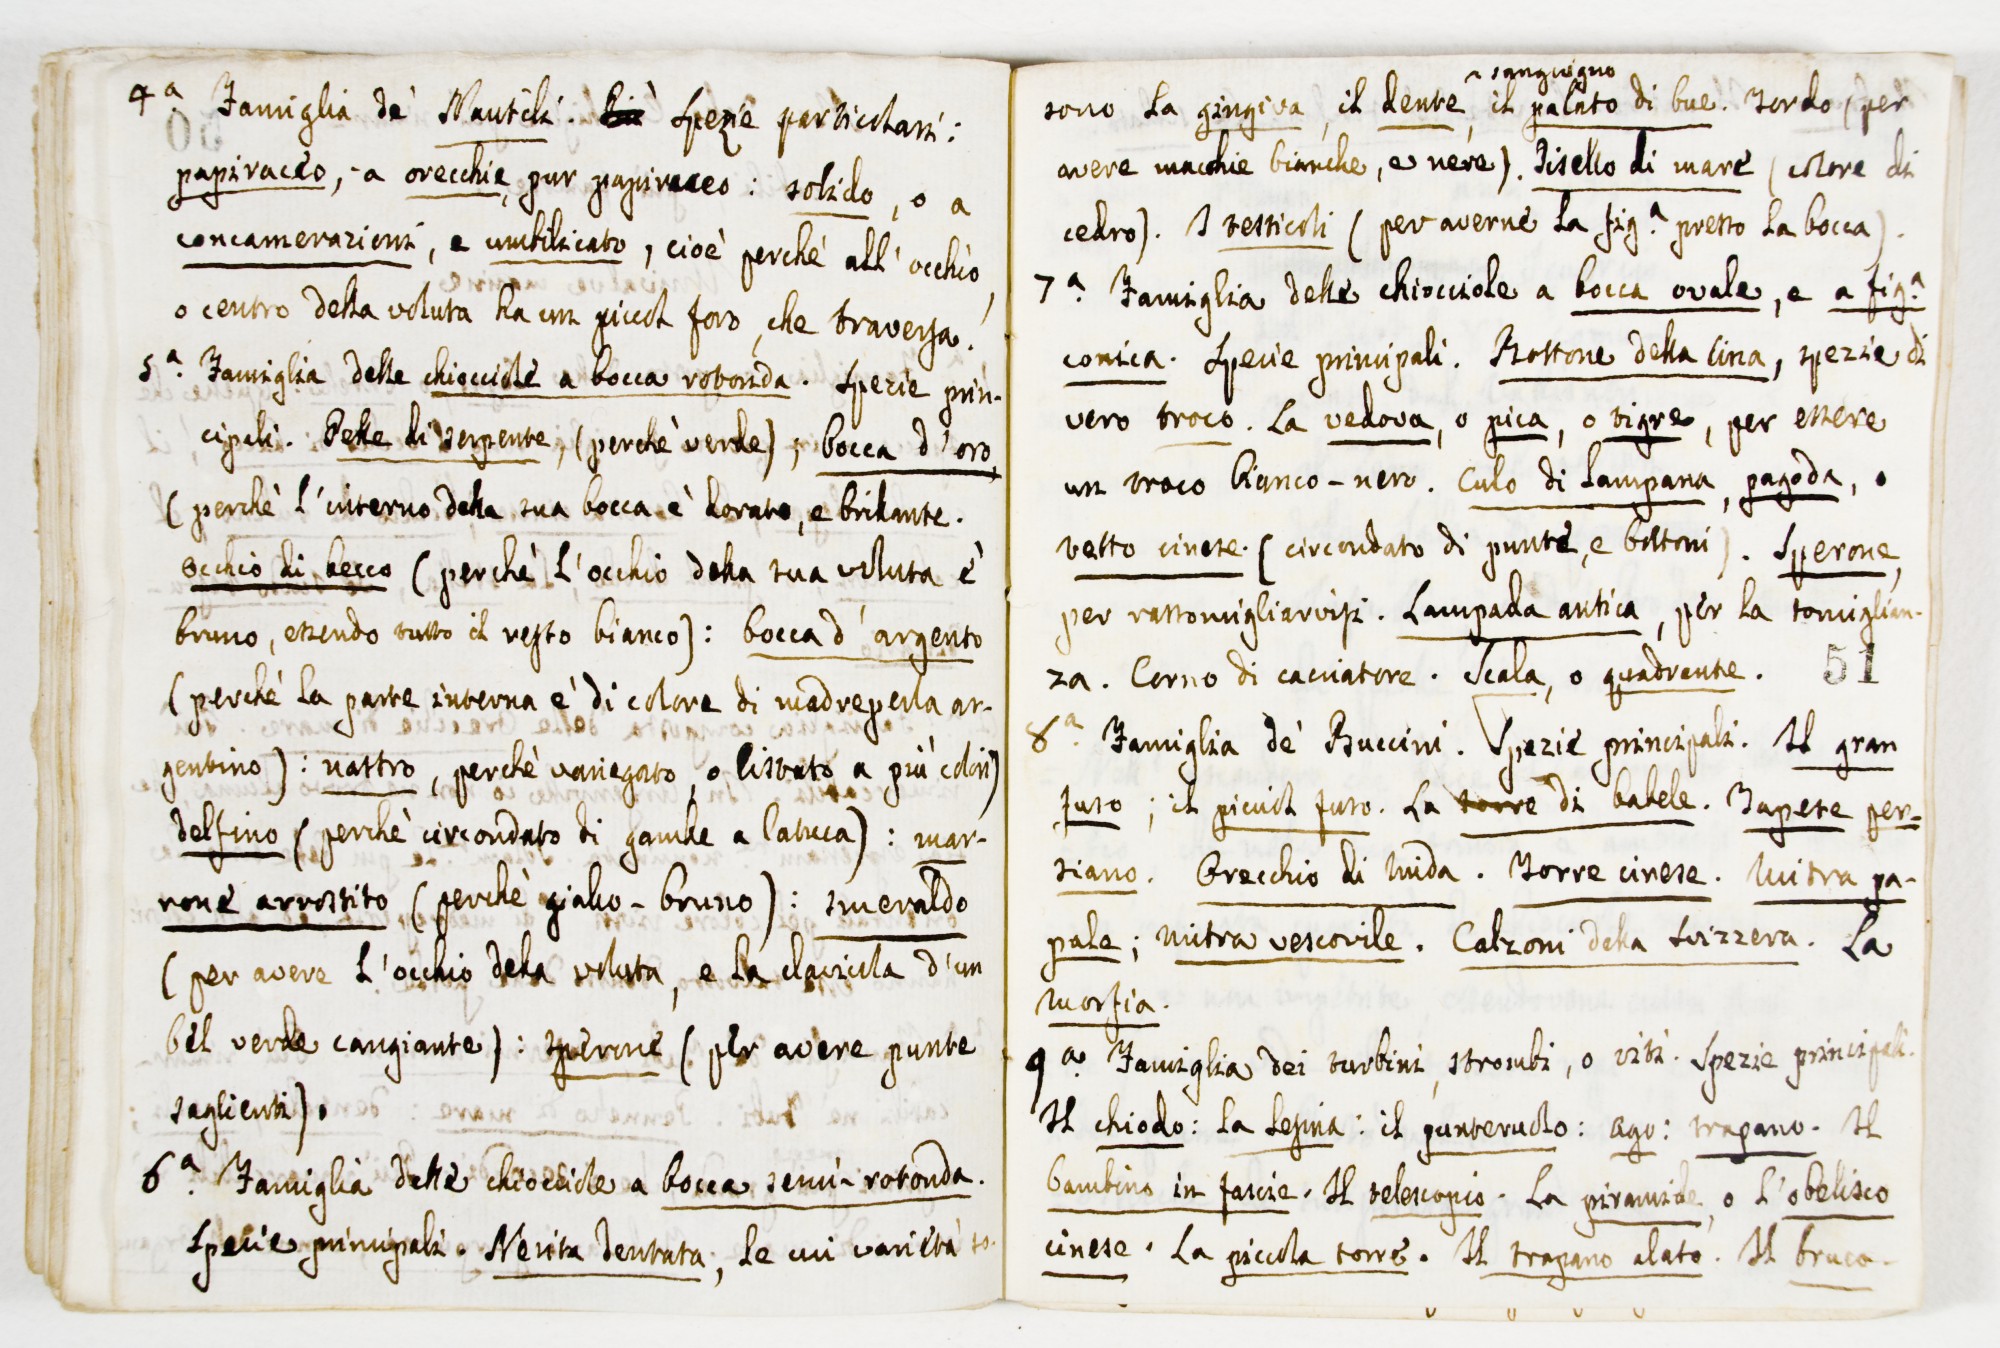 4ª Famiglia de' Nautili. Più Spezie particolari:
papiraceo, a orecchie, pur papiraceo: solido, o a
concamerazioni, e umbilicato, cioè perchè all'occhio,
o centro della voluta ha un piccol foro, che traversa.
5ª. Famiglia delle chiocciole a bocca rotonda. Specie prin-
cipali. Pelle di serpente, (perchè verde); bocca d'oro,
(perchè l'interno della sua bocca è dorato, e brillante.
Occhio di becco (perchè l'occhio della sua voluta è
bruno, essendo tutto il resto bianco): bocca d'argento
(perchè la parte interna è di colore di madreperla ar-
gentino): nastro, perchè variegato, o listato a più colori)
delfino (perchè circondato di gambe a lattuca): mar-
rone arrostito (perchè giallo-bruno): smeraldo
(per avere l'occhio della voluta, e la clavicola d'un
bel verde cangiante): sperone (per avere punte
saglienti).
6ª. Famiglia delle chiocciole a bocca semi-rotonda.
Specie principali. Nerita dentata, le cui varietà so-
50
sanguigno
sono la gingiva, il dente, il palato di bue. Tordo (per
avere macchie bianche, e nere). Pisello di mare (colore di
cedro). I testicoli (per averne la figª presso la bocca).
7ª. Famiglia delle chiocciole a bocca ovale, e a figª
conica. Specie principali. Bottone della Cina, spezie di
vero troco. La vedova, o pica, o tigre, per essere
un troco bianco-nero. Culo di lampana, pagoda, o
tetto cinese (circondato di punte, e bottoni). Sperone,
per rassomigliarvisi. Lampada antica, per la somiglian-
za. Corno di cacciatore. Scala, o quadrante.
51
8ª. Famiglia de' Buccini. Spezie principali. Il gran
fuso; il piccol fuso. La torre di babele. Tapete per-
siano. Orecchio di Mida. Torre cinese. Mitra pa-
pale; mitra vescovile. Calzoni della Svizzera. La
Morfia.
9ª. Famiglia dei turbini, strombi, o viti. Spezie principali.
Il chiodo: la lesina: il punteruolo: ago: trapano. Il
bambino in fascie. Il telescopio. La piramide, o l'obelisco
cinese. La piccola torre. Il trapano alato. Il bruco-